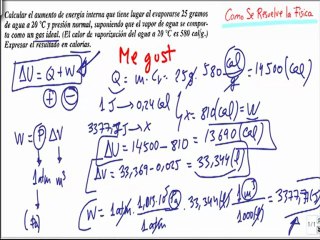 Calcular el aumento de energía interna que tiene lugar al evaporarse 25 gramos
de agua a 20 °C y presión normal, suponiendo que el vapor de agua se compor-
ta como un gas ideal. (El calor de vaporización del agua a 20 °C es 580 cal/g.)
Expresar el resultado en calorías.
Como Se Resuelve la Física
Me gust
ΔU = Q + W
⊕ ⊖
Q = m · Cv = 25g · 580 cal/g = 14500 (cal)
1 J → 0,24 cal
3377 J → X
X = 810 (cal) = W
ΔU = 14500 - 810 = 13690 (cal)
ΔU = 33,369 - 0,025 = 33,344 (l)
W = P ΔV
1 atm m³
(Pa)
W = 1 atm · 1,013·10⁵ Pa / 1 atm · 33,344 (l) · 1 m³ / 1000 (l) = 3377 J